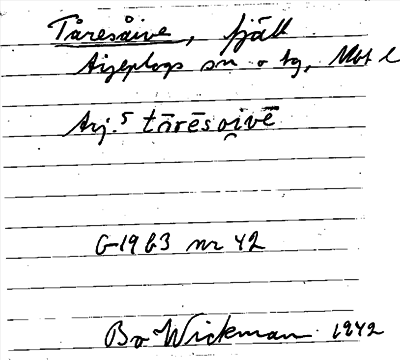 Tåresåive, fjäll
Arjeplogs sn o tg, Nbt l
Arj.⁵ tārēsoi̯vē
G1963 nr 42
Bo Wickman 1942